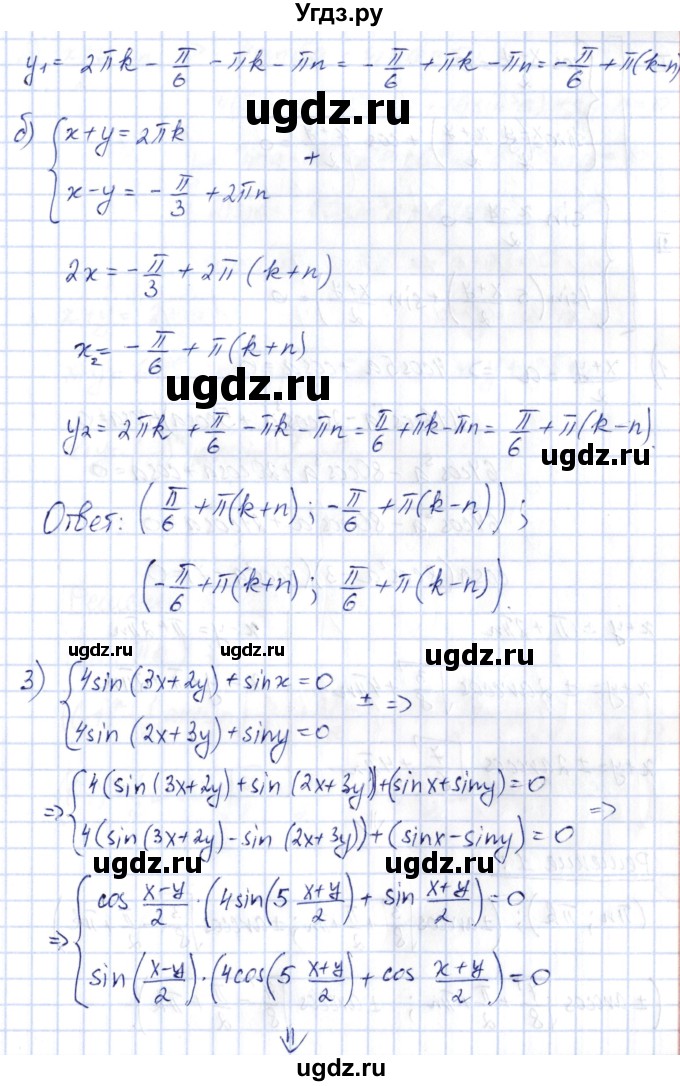 Угдз.ру
y₁ = 2πk - π/6 - πk - πn = - π/6 + πk - πn = - π/6 + π(k-n)
ugdz.ru
б) { x+y = 2πk
+
x-y = - π/3 + 2πn
2x = - π/3 + 2π(k+n)
x₂ = - π/6 + π(k+n)
ugdz.ru
y₂ = 2πk + π/6 - πk - πn = π/6 + πk - πn = π/6 + π(k-n)
ugdz.ru
Ответ: (π/6 + π(k+n); - π/6 + π(k-n));
(- π/6 + π(k+n); π/6 + π(k-n)).
ugdz.ru
ugdz.ru ugdz.ru
3) { 4sin(3x+2y) + sinx = 0
± =>
4sin(2x+3y) + siny = 0
=> { 4(sin(3x+2y) + sin(2x+3y)) + (sinx + siny) = 0
=>
4(sin(3x+2y) - sin(2x+3y)) + (sinx - siny) = 0
ugdz.ru ugdz.ru
=> { cos (x-y)/2 · (4sin(5 (x+y)/2) + sin (x+y)/2) = 0
sin((x-y)/2) · (4cos(5 (x+y)/2) + cos (x+y)/2) = 0
⇓
ugdz.ru
ugdz.ru